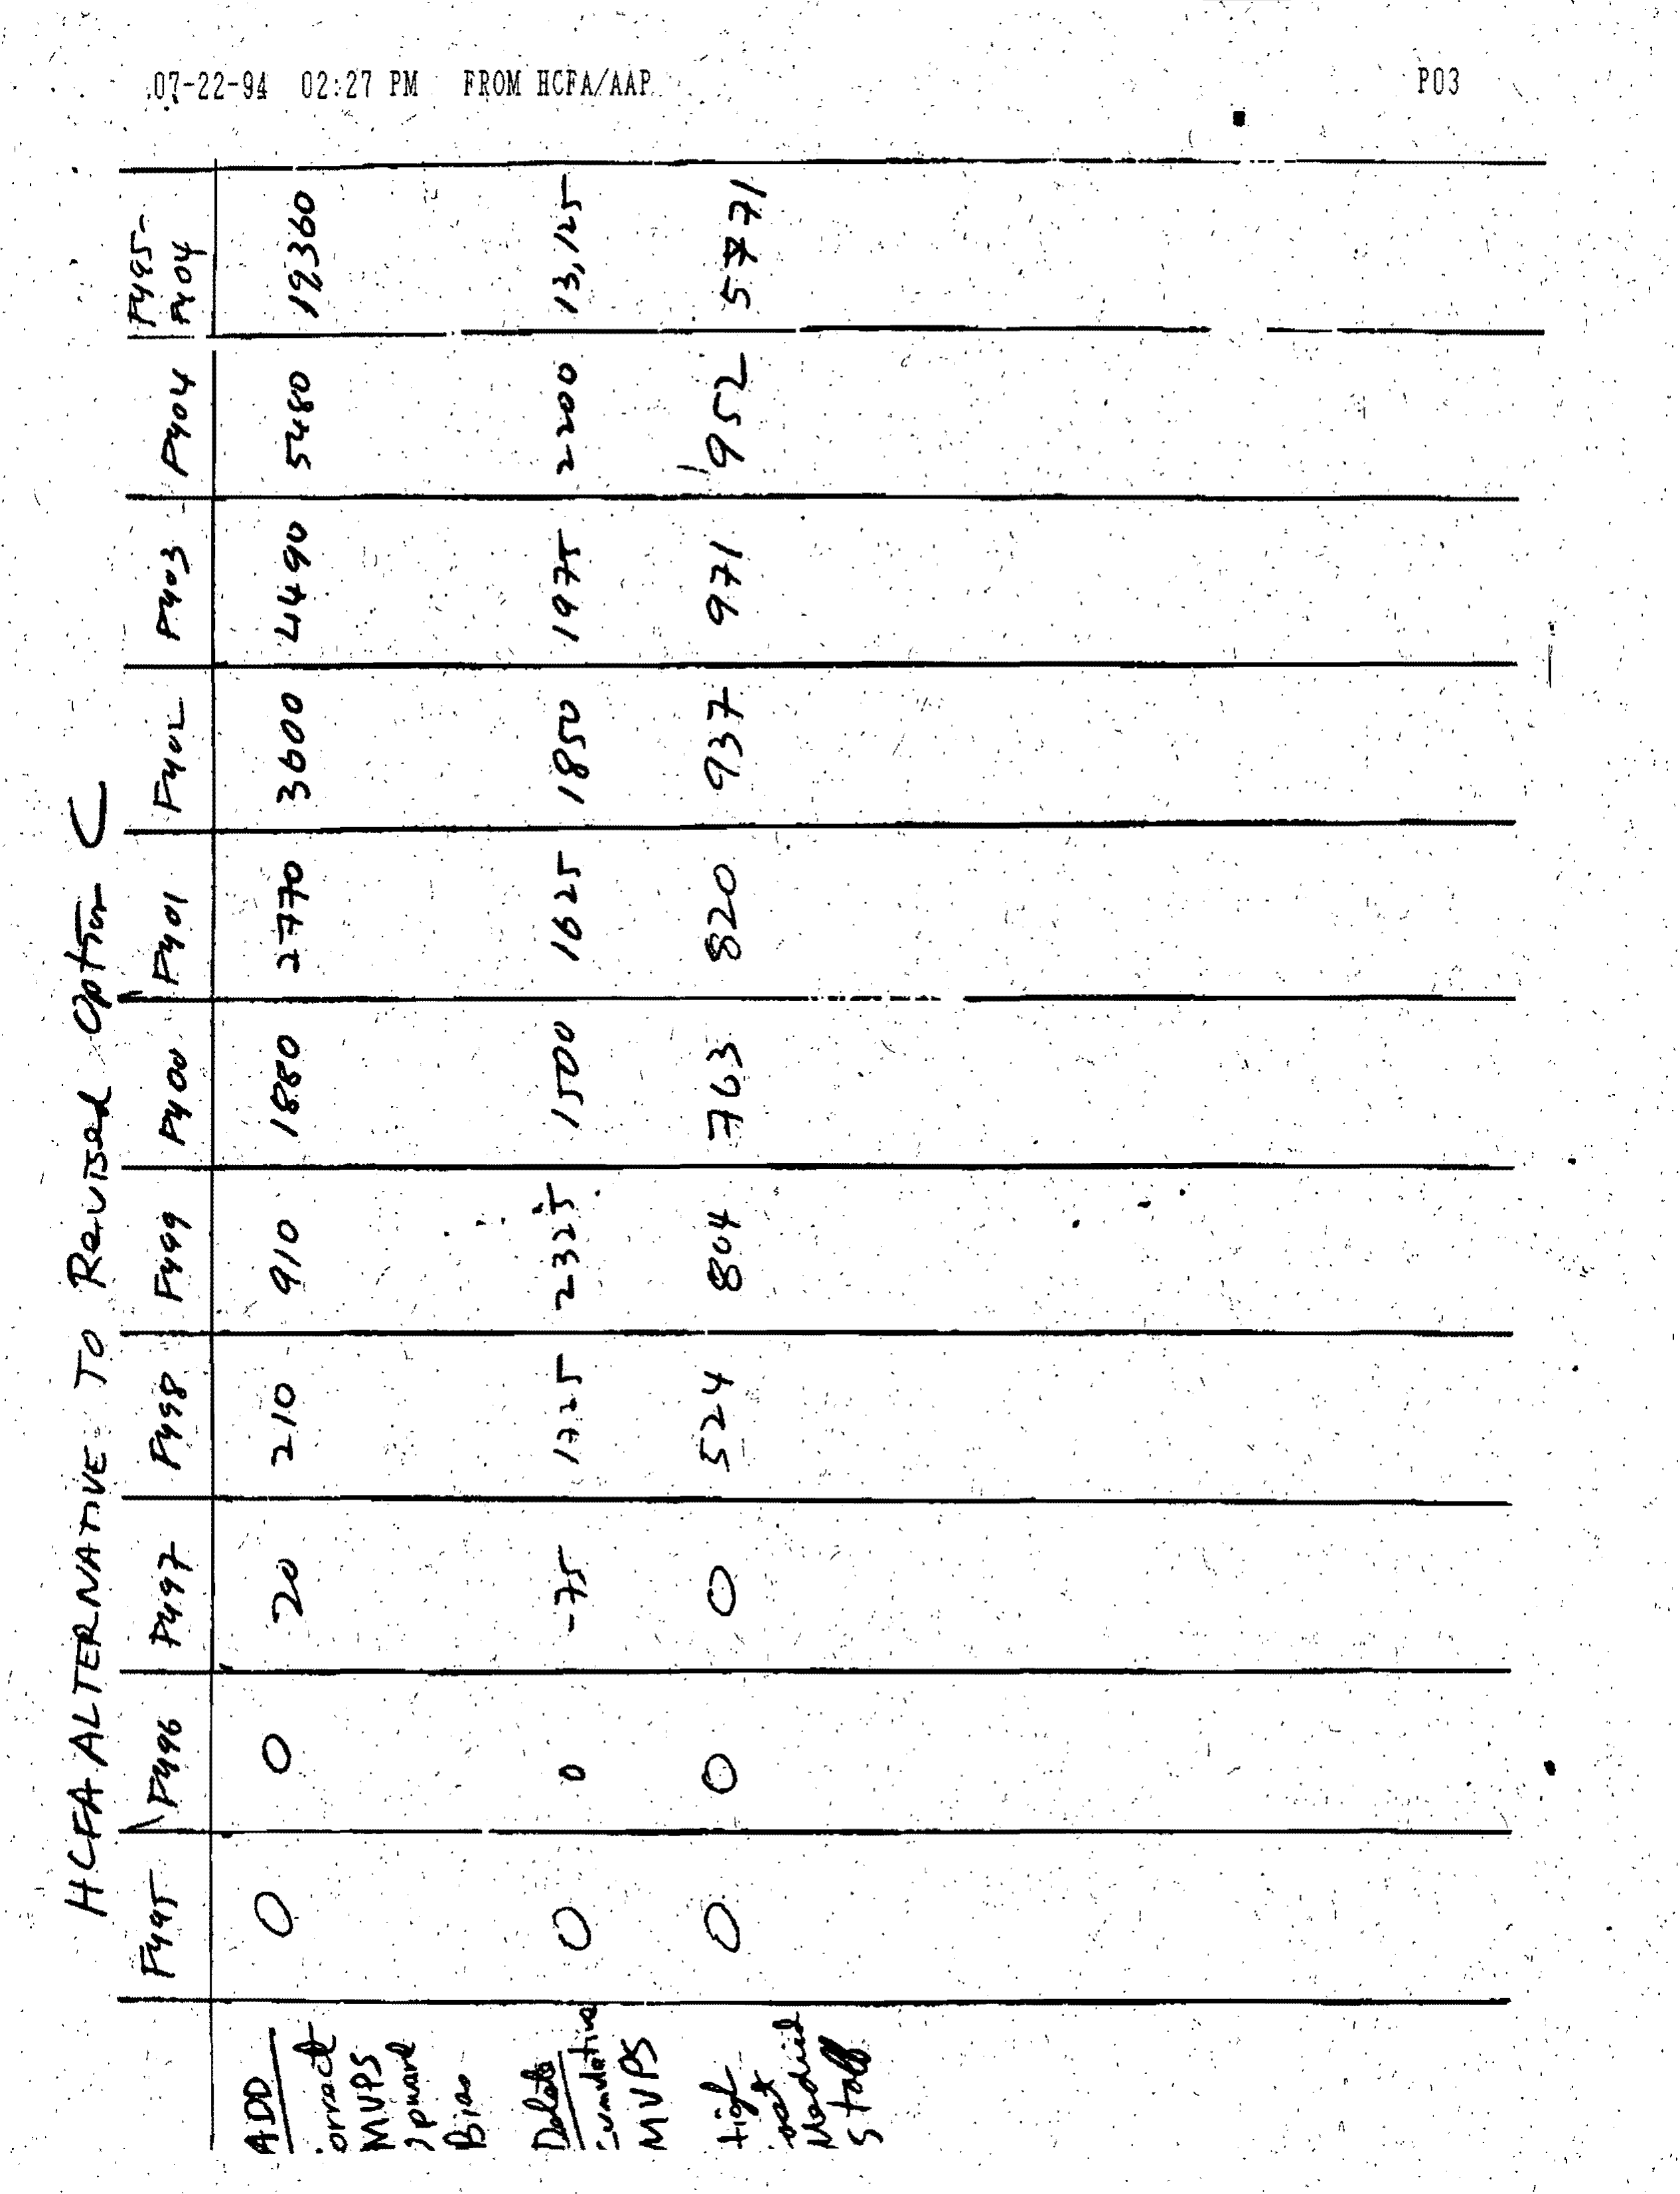 07-22-94 02:27 PM FROM HCFA/AAP P03
HCFA ALTERNATIVE TO Revised Option C
FY95 FY96 FY97 FY98 FY99 FY00 FY01 FY02 FY03 FY04 FY95-FY04
ADD
orrect MVPS pward Bias 0 0 20 210 910 1880 2770 3600 4490 5480 19360
Delete
cumulative MVPS 0 0 -75 1725 2325 1500 1625 1850 1975 2200 13,125
High ost Medical Staff 0 0 0 524 804 763 820 937 971 952 5771